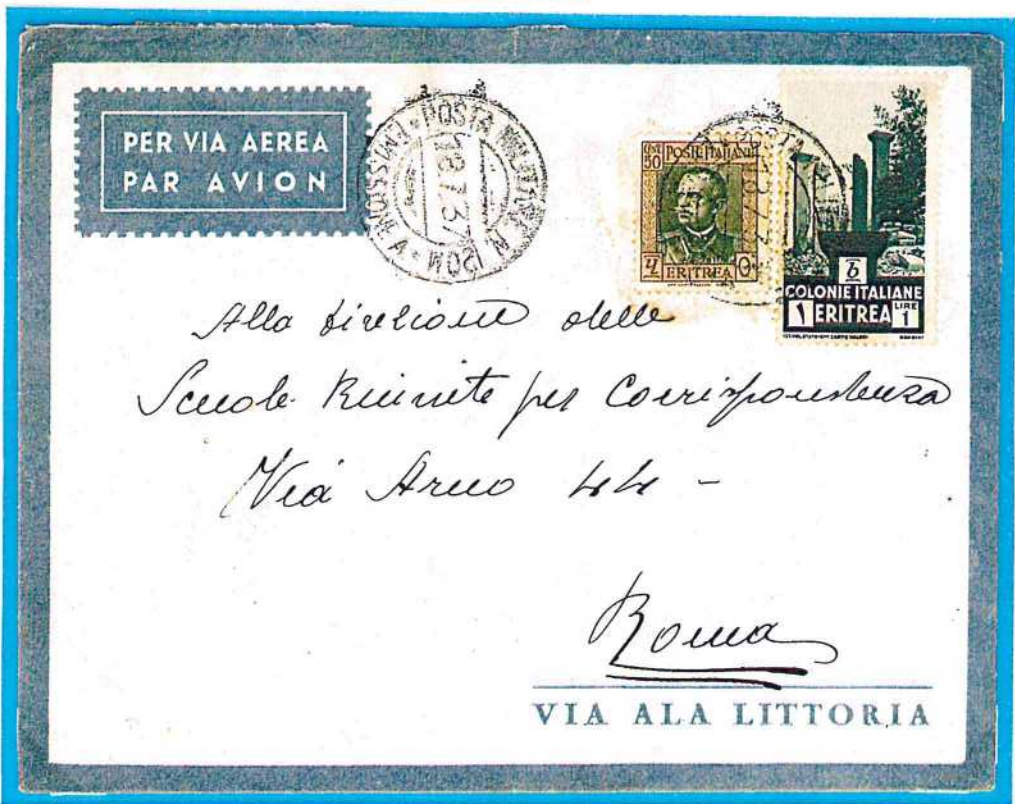 PER VIA AEREA
PAR AVION
POSTA MILITARE N 120
EMISSIONI A
18.7.37
CENT 50 POSTE ITALIANE
ERITREA
COLONIE ITALIANE
1 ERITREA LIRE 1
Alla direzione delle
Scuole Riunite per Corrispondenza
Via Arno 44 -
Roma
VIA ALA LITTORIA